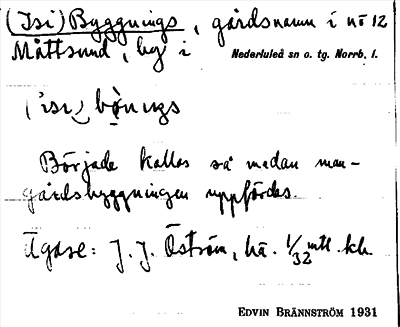 (Isi) Byggnings, gårdsnamn i nr 12
Måttsund, by i Nederluleå sn o. tg. Norrb. l.
('isi) bònıŋs
Började kallas så medan man-
gårdsbyggningen uppfördes.
Ägare: J. J. Öström, ha. 1/32 mtl. kh.
EDVIN BRÄNNSTRÖM 1931